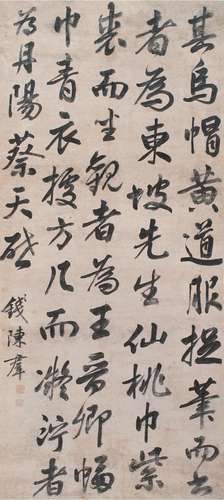 其烏帽黃道服捉筆而書
者為東坡先生仙桃巾紫
裘而坐觀者為王晉卿幅
巾青衣據方几而凝泞者
為丹陽蔡天啟
錢陳羣